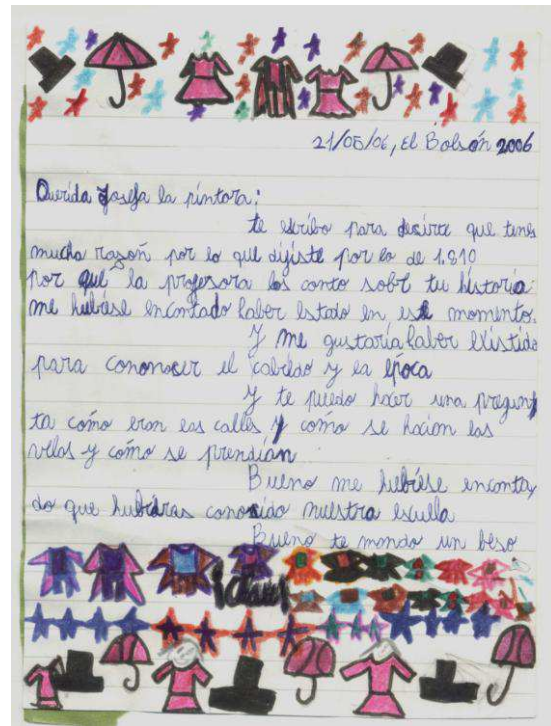 21/05/06, El Bolsón 2006
Querida Josefa la pintora:
te escribo para decirte que tenes
mucha razón por lo que dijiste por lo de 1.810
por que la profesora los conto sobre tu historia
me hubiese encantado haber estado en este momento.
Y me gustaría haber existido
para cononocer el cabildo y la época
Y te puedo hacer una pregun
ta como eran las calles y como se hacian las
velas y cómo se prendían
Bueno me hubiése encanta
do que hubieras conocido nuestra escuela
Bueno te mando un beso
¡chau!